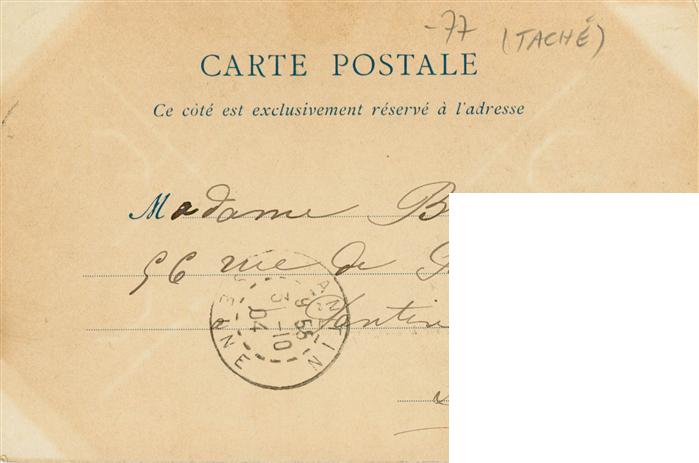 -77
(TACHÉ)
CARTE POSTALE
Ce côté est exclusivement réservé à l'adresse
Madame B
56 rue de
à Pantin
9 55
3 -10
04